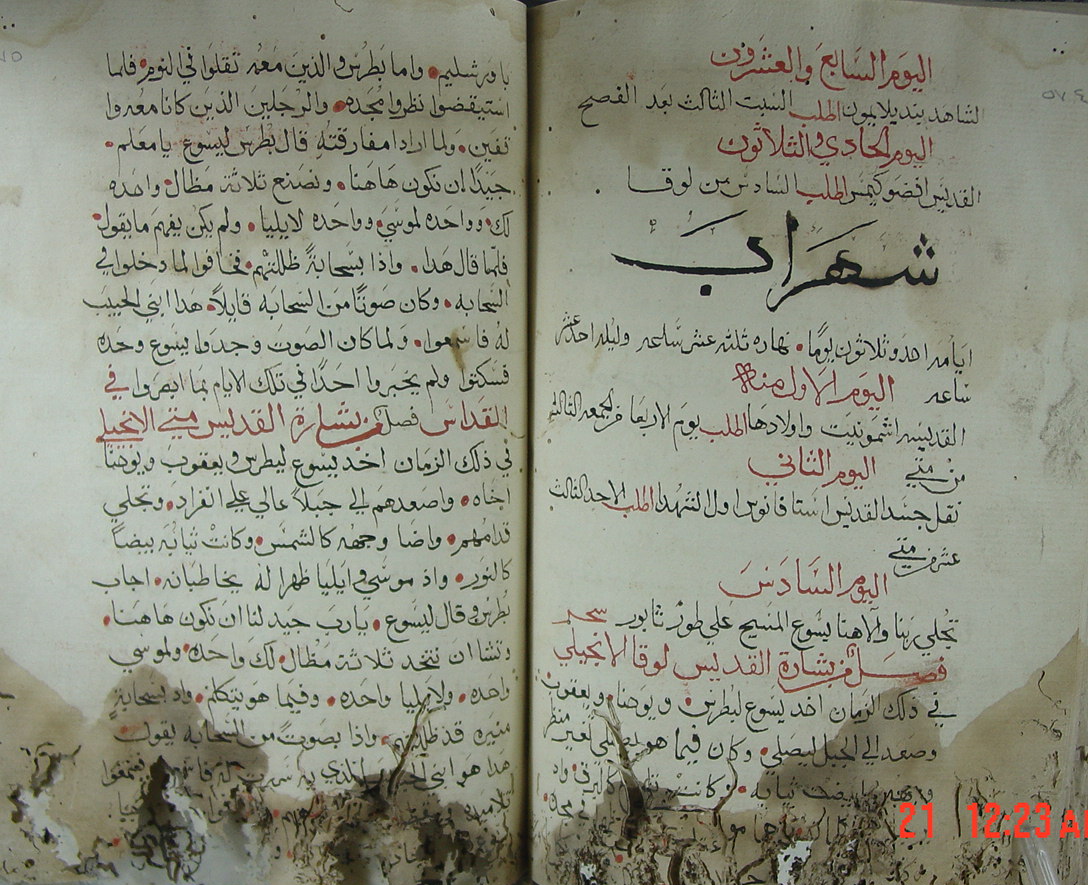 اليوم السابع والعشرون
الشاهد بنديلايمون اطلب السبت الثالث بعد الفصح
اليوم الحادي والثلاثون
القديس افضوكيمس اطلب السادس من لوقا
شهر اب
ايامه احد وثلاثون يوما • نهاره ثلثه عشر ساعه وليله احد عشر
ساعه اليوم الاول منه
القديسه اشمونيت واولادها اطلب يوم الاربعا من الجمعه الثالثه
من متي اليوم الثاني
نقل جسد القديس استافانوس اول الشهدا اطلب الاحد الثالث
عشر من متي
اليوم السادس
تجلي ربنا والاهنا يسوع المسيح علي طور ثابور سحر
فصل من بشارة القديس لوقا الانجيلي
في ذلك الزمان اخد يسوع لبطرس • ويوحنا • ويعقوب
وصعد الي الجبل ليصلي • وكان فيما هو يصلي تغير منظر
وجهه وابيضت ثيابه • وكانت
باورشليم • واما بطرس والذين معه ثقلوا في النوم • فلما
استيقضوا نظروا مجده • والرجلين الذين كانا معه وا
قفين • ولما ارادا مفارقته قال بطرس ليسوع يا معلم •
جيدا ان نكون هاهنا • ونصنع ثلاثة مظال • واحده
لك • وواحده لموسي • وواحده لايليا • ولم يكن يفهم ما يقول •
فلما قال هدا • واذا بسحابة ظللتهم • فخافوا لما دخلوا في
السحابه • وكان صوتا من السحابه قايلا • هدا ابني الحبيب
له فاسمعوا • ولما كان الصوت وجدوا يسوع وحده
فسكتوا ولم يخبروا احدا في تلك الايام بما ابصروا في
القداس فصل من بشارة القديس متي الانجيلي
في ذلك الزمان اخد يسوع لبطرس ويعقوب ويوحنا
اخاه • واصعدهم الي جبلا عالي علي انفراد • وتجلي
قدامهم • واضا وجهه كالشمس • وكانت ثيابه بيضا
كالنور • واذ موسي وايليا ظهرا له يخاطبانه • اجاب
بطرس وقال ليسوع • يارب جيد لنا ان نكون هاهنا •
وتشا ان نتخد ثلاثة مظال • لك واحده • ولموسي
واحده • ولايليا واحده • وفيما هو يتكلم • واذ بسحابة
منيره قد ظللتهم • واذا بصوت من السحابه يقول •
هدا هو ابني الحبيب الذي به سررت
21 12:23 A